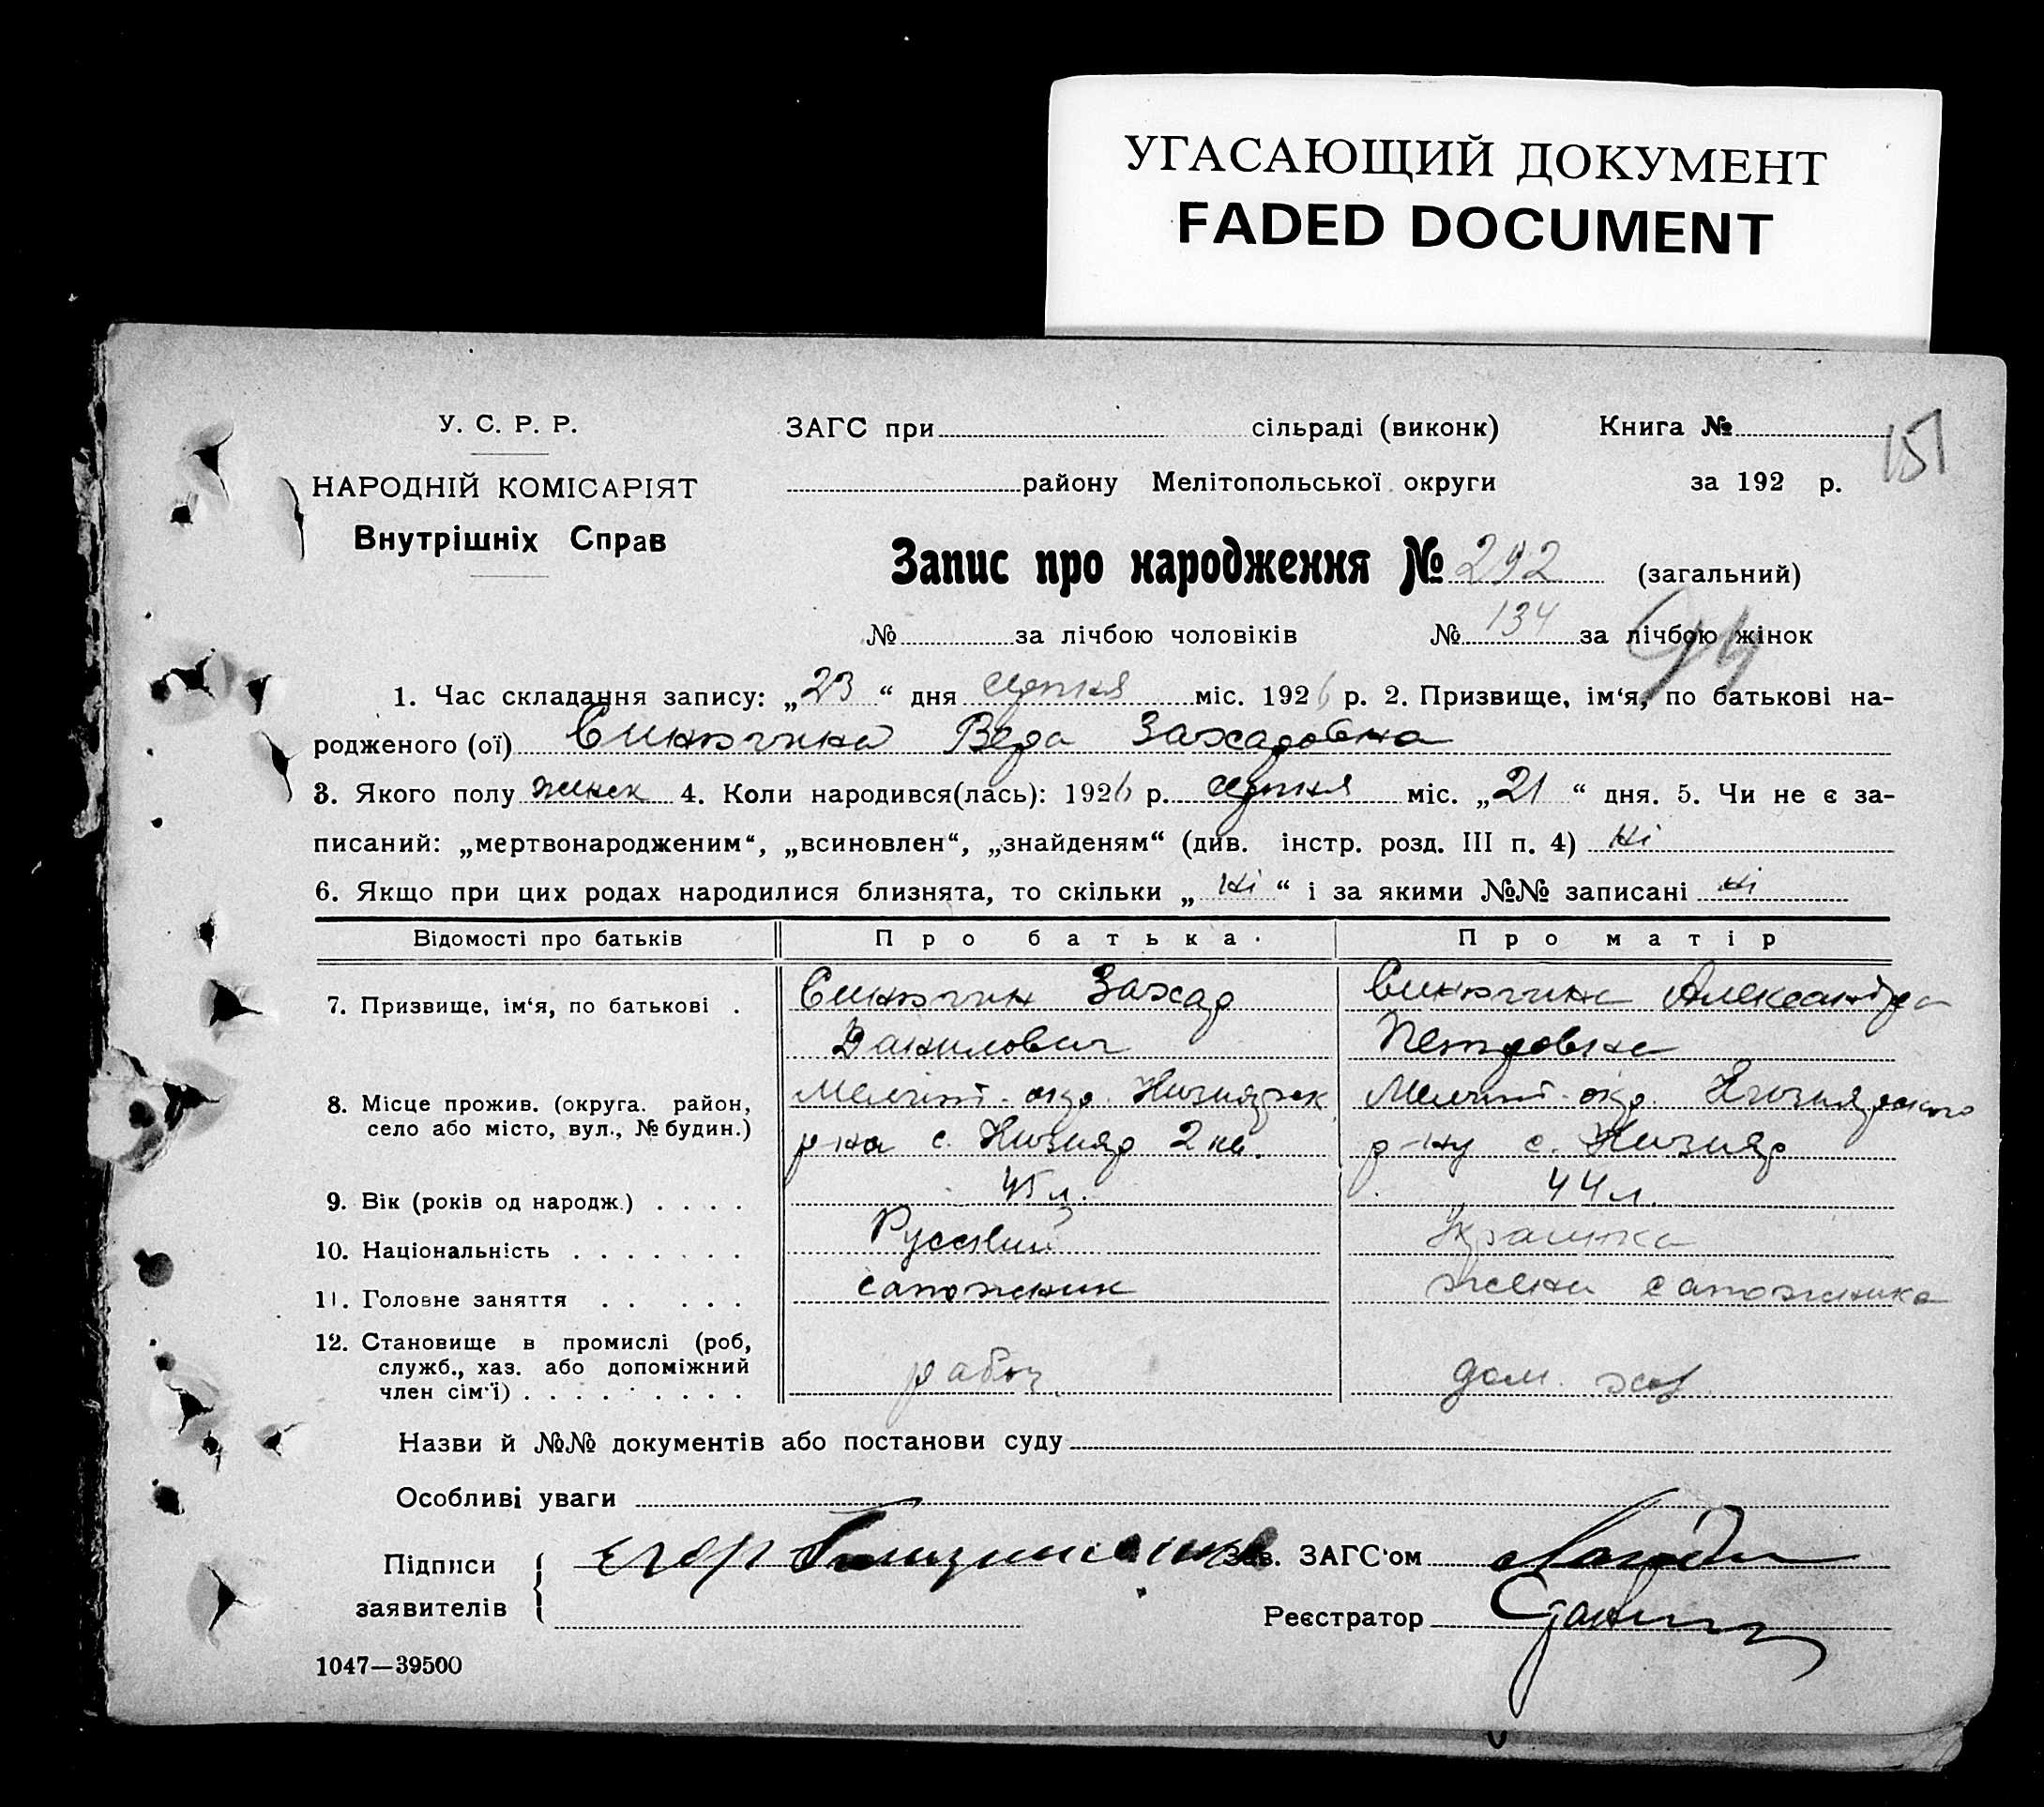 УГАСАЮЩИЙ ДОКУМЕНТ
FADED DOCUMENT
У. С. Р. Р.
НАРОДНІЙ КОМІСАРІЯТ
Внутрішніх Справ
ЗАГС при сільраді (виконк) Книга №
151
району Мелітопольської округи за 192 р.
Запис про народження № 292 (загальний)
№ за лічбою чоловіків № 134 за лічбою жінок
1. Час складання запису: „23“ дня серпня міс. 1926 р. 2. Призвище, ім‘я, по батькові на-
родженого (ої) Синючина Вера Захаровна
3. Якого полу жинск 4. Коли народився(лась): 1926 р. серпня міс. „21“ дня. 5. Чи не є за-
писаний: „мертвонародженим“, „всиновлен“, „знайденям“ (див. інстр. розд. III п. 4) ні
6. Якщо при цих родах народилися близнята, то скільки „ні“ і за якими №№ записані ні
Відомості про батьків Про батька Про матір
7. Призвище, ім‘я, по батькові . Синючин Захар Синючина Александра
Данилович Петровна
8. Місце прожив. (округа. район, Мелит. окр. Низиярск Мелит. окр. Низиярского
село або місто, вул., № будин.) р-на с. Низияр 2 кв. р-ну с. Низияр
9. Вік (років од народж.) . . . . 45 л. 44 л.
10. Національність . . . . . . . Русский Украинка
11. Головне заняття . . . . . сапожник жена сапожника
12. Становище в промислі (роб,
служб., хаз. або допоміжний
член сім‘ї) . . . . . . . . . рабоч. дом. хоз.
Назви й №№ документів або постанови суду
Особливі уваги
Підписи
заявителів
Егор
Зав. ЗАГС‘ом
Реєстратор
1047—39500